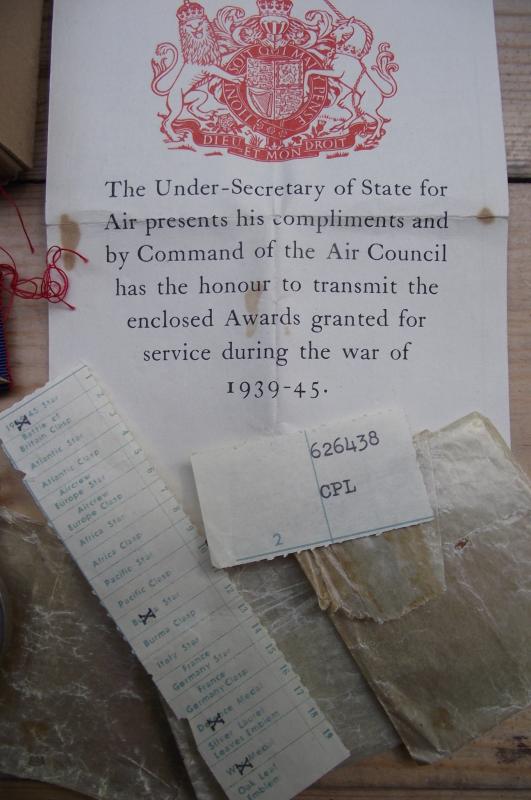 DIEU ET MON DROIT
The Under-Secretary of State for
Air presents his compliments and
by Command of the Air Council
has the honour to transmit the
enclosed Awards granted for
service during the war of
1939-45.
1939-45 Star 1
Battle of
Britain Clasp 2
Atlantic Star
Atlantic Clasp 4
Aircrew
Europe Star 5
Aircrew
Europe Clasp 6
Africa Star 7
Africa Clasp 8
Pacific Star
Pacific Clasp
Burma Star
Burma Clasp 12
Italy Star 13
France
Germany Star 14
France
Germany Clasp 15
Defence Medal 16
Silver Laurel
Leaves Emblem 17
War Medal 18
Oak Leaf
Emblem 19
626438
CPL
2